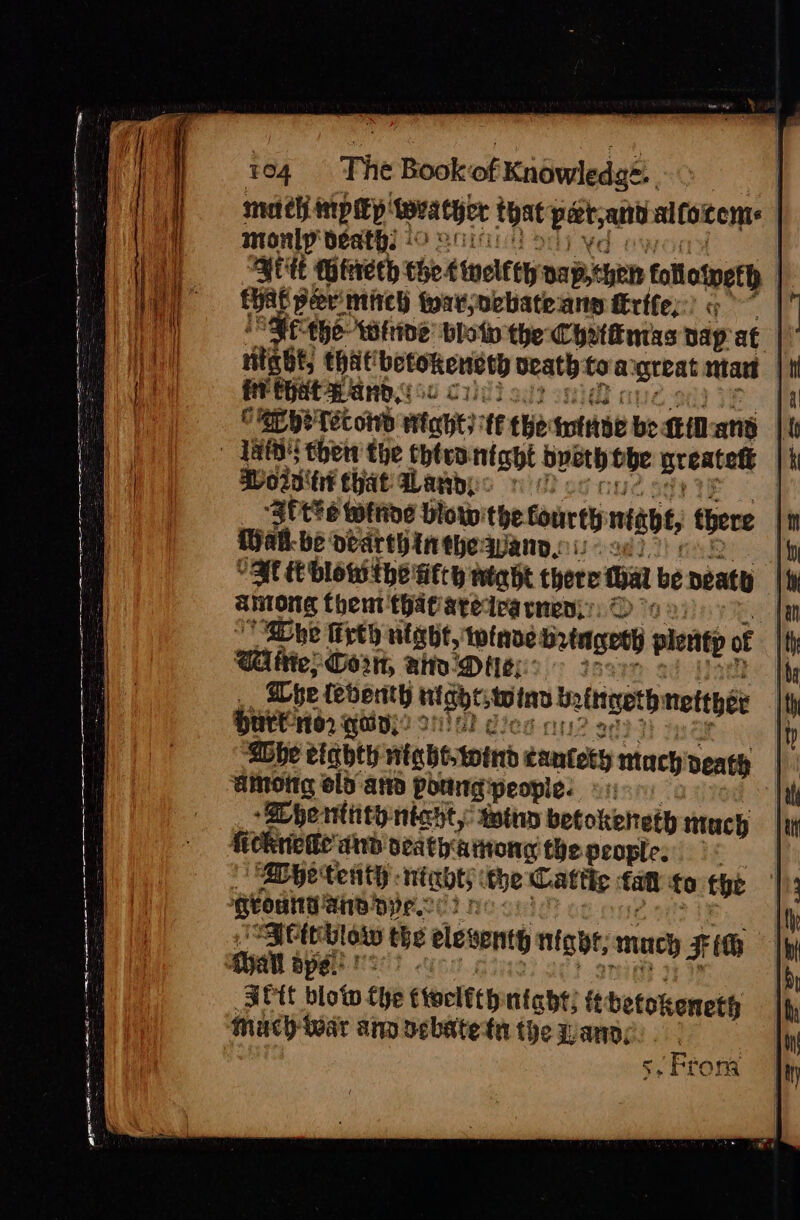 104 The Book of Knowledge.
much mysty weather that yeer, and also com-
monly death.
If it shineth the twelfth day, then followeth
that yeer much war, debate and strife.
If the winde blow the Christmas day at
night, that betokeneth death to a great man
in that Land.
The second night, if the winde be still and
laid; then the third night dyeth the greatest
Lord in that Land.
If the winde blow the fourth night, there
shall be dearth in the Land.
If it blow the fifth night there shal be death
among them that are learned.
The sixth night, winde bringeth plenty of
Wine, Corn, and Oyle.
The seventh night, wind bringeth neither
hurt nor good.
The eighth night, wind causeth much death
among old and young people.
The ninth night, wind betokeneth much
sicknesse and death among the people.
The tenth night, the Cattle fall to the
ground and dye.
If it blow the eleventh night, much Fish
shall dye.
If it blow the twelfth night, it betokeneth
much war and debate in the Land.
5. From